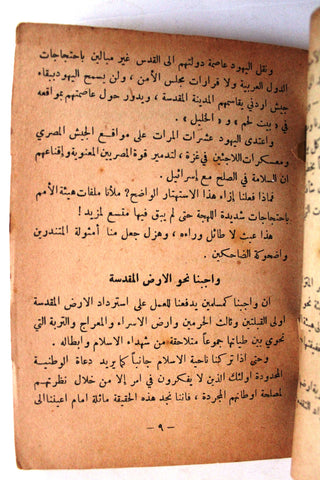 ونقل اليهود عاصمة دولتهم الى القدس غير مبالين باحتجاجات
الدول العربية ولا قرارات مجلس الأمن ، ولن يسمح اليهود ببقاء
جيش اردني يقاسمهم المدينة المقدسة ، ويدور حول عاصمتهم بمواقعه
في « بيت لحم » و « الخليل » .
واعتدى اليهود عشرات المرات على مواقع الجيش المصري
ومعسكرات اللاجئين في غزة ، لتدمير قوة المصريين المعنوية وإقناعهم
ان السلامة في الصلح مع إسرائيل .
فماذا فعلنا إزاء هذا الاستهتار الواضح؟ ملأنا ملفات هيئة الأمم
باحتجاجات شديدة اللهجة حتى لم يبق فيها متسع لمزيد !
هذا عبث لا طائل وراءه ، وهزل جعل منا أمثولة المتندرين
واضحوكة الضاحكين .
واجبنا نحو الارض المقدسة
ان واجبنا كمسلمين يدفعنا للعمل على استرداد الارض المقدسة
اولى القبلتين وثالث الحرمين وارض الاسراء والمعراج والتربة التي
تحوي بين طياتها جموعاً متلاحقة من شهداء الاسلام وابطاله .
وحتى اذا تركنا ناحية الاسلام جانباً كما يريد دعاة الوطنية
المحدودة اولئك الذين لا يفكرون في امر إلا من خلال نظرتهم
لمصلحة اوطانهم المجردة ، فاننا نجد هذه الحقيقة ماثلة امام اعيننا الى
— ٩ —